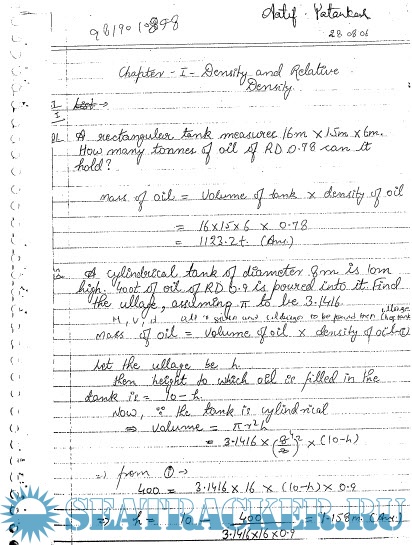 9819010898
Aatif. Patankar
28.08.06
Chapter - I - Density and Relative
Density.
Q1. A rectangular tank measures 16m x 15m x 6m.
How many tonnes of oil of RD 0.78 can it
hold?
mass of oil = volume of tank x density of oil
= 16 x 15 x 6 x 0.78
= 1123.2t. (Ans.)
A cylindrical tank of diameter 8m is 10m
high. 400t of oil of RD 0.9 is poured into it. Find
the ullage, assuming π to be 3.1416
M, V, d all is given and ullage to be found then
mass of oil = volume of oil x density of oil - ①
Let the ullage be h.
then height to which oil is filled in the
tank is = 10 - h.
Now, ∵ the tank is cylindrical
⇒ volume = πr²h
= 3.1416 x (8/2)² x (10-h)
⇒ from ① →
400 = 3.1416 x 16 x (10-h) x 0.9
⇒ h = 10 - 400 / 3.1416 x 16 x 0.9 = 1.158m. (Ans.)
SEATRACKER.RU